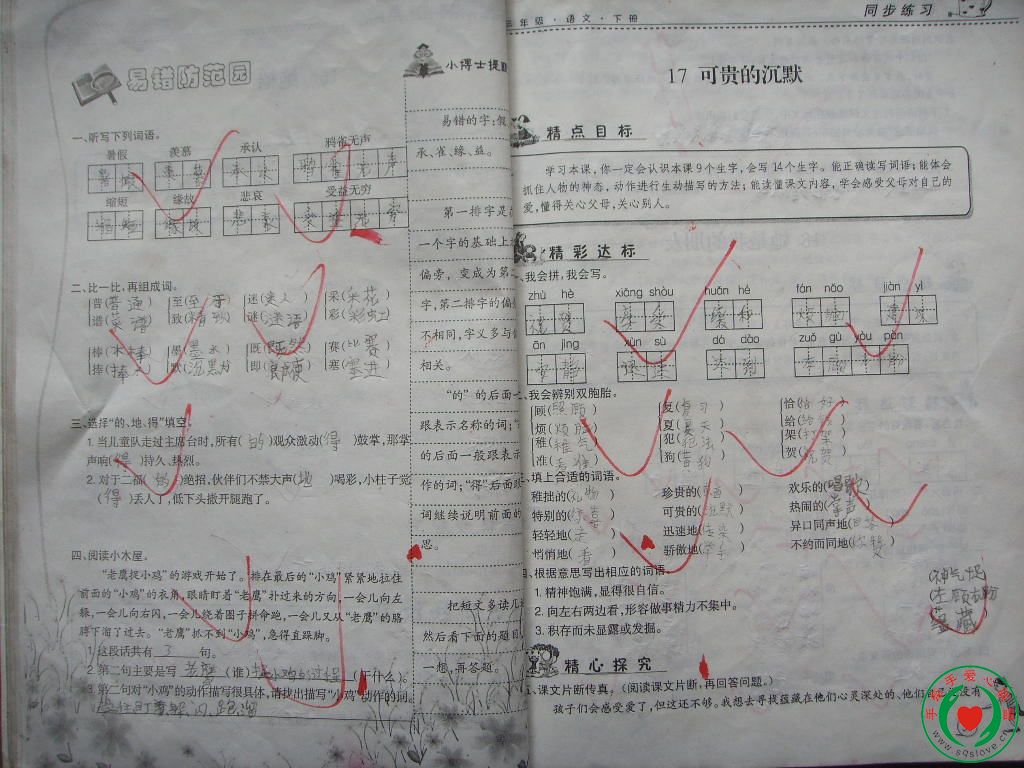 易错防范园
一、听写下列词语。
暑假 羡慕 承认 鸦雀无声
缩短 缘故 悲哀 受益无穷
二、比一比,再组成词。
普(普通) 至(至于) 迷(迷人) 采(采花)
谱(菜谱) 致(精致) 谜(谜语) 彩(彩虹)
棒(木棒) 墨(墨水) 既(既然) 赛(比赛)
捧(捧) 默(沉默) 即(即便) 塞(塞进)
三、选择“的、地、得”填空。
1. 当儿童队走过主席台时,所有(的)观众激动(得)鼓掌,那掌
声响(得)持久、热烈。
2. 对于二福(的)绝招,伙伴们不禁大声(地)喝彩,小柱子觉
(得)丢人了,低下头撒开腿跑了。
四、阅读小木屋。
“老鹰捉小鸡”的游戏开始了。排在最后的“小鸡”紧紧地拉住
前面的“小鸡”的衣角,眼睛盯着“老鹰”扑过来的方向,一会儿向左
躲,一会儿向右闪,一会儿绕着圈子拼命跑,一会儿又从“老鹰”的胳
膊下溜了过去。“老鹰”抓不到“小鸡”,急得直跺脚。
1. 这段话共有 3 句。
2. 第二句主要是写 (谁) 小鸡的过程 (干什么)。
3. 第二句对“小鸡”的动作描写很具体,请找出描写“小鸡”动作的词。
拉住 盯 躲 闪 跑 溜
小博士提
易错的字:假、
承、雀、缘、益。
第一排字是
一个字的基础上
偏旁,变成为第二
字,第二排字的偏
不相同,字义多与
相关。
“的”的后面一
跟表示名称的词;
的后面一般跟表示
作的词;“得”后面
词继续说明前面的
思。
把短文多读几
然后看下面的题目
一想,再答题。
三年级·语文·下册
同步练习
17 可贵的沉默
精点目标
学习本课,你一定会认识本课9个生字,会写14个生字。能正确读写词语;能体会
抓住人物的神态,动作进行生动描写的方法;能读懂课文内容,学会感受父母对自己的
爱,懂得关心父母,关心别人。
精彩达标
一、我会拼,我会写。
zhù hè xiǎng shòu huān hé fán nǎo jiàn yì
ān jìng xùn sù dá dào zuǒ gù yòu pàn
二、我会辨别双胞胎。
顾(照顾) 复(复习) 恰(恰好)
烦(烦恼) 夏(夏天) 给(给)
稚(稚气) 犯(犯法) 架(打架)
准(准) 狗(狗) 贺(祝贺)
三、填上合适的词语。
稚拙的(礼物) 珍贵的(东西) 欢乐的(唱歌)
特别的(惊喜) 可贵的(沉默) 热闹的(掌声)
轻轻地(走) 迅速地(传染) 异口同声地(回答)
悄悄地(看) 骄傲地(举手) 不约而同地(称赞)
四、根据意思写出相应的词语。
1. 精神饱满,显得很自信。 神气
2. 向左右两边看,形容做事精力不集中。 左顾右盼
3. 积存而未显露或发掘。 蕴藏
精心探究
一、课文片断传真,(阅读课文片断,再回答问题。)
孩子们会感受爱了,但这还不够。我想去寻找蕴藏在他们心灵深处的、他们自己还没有
手拉手爱心
www.sqslove.cn